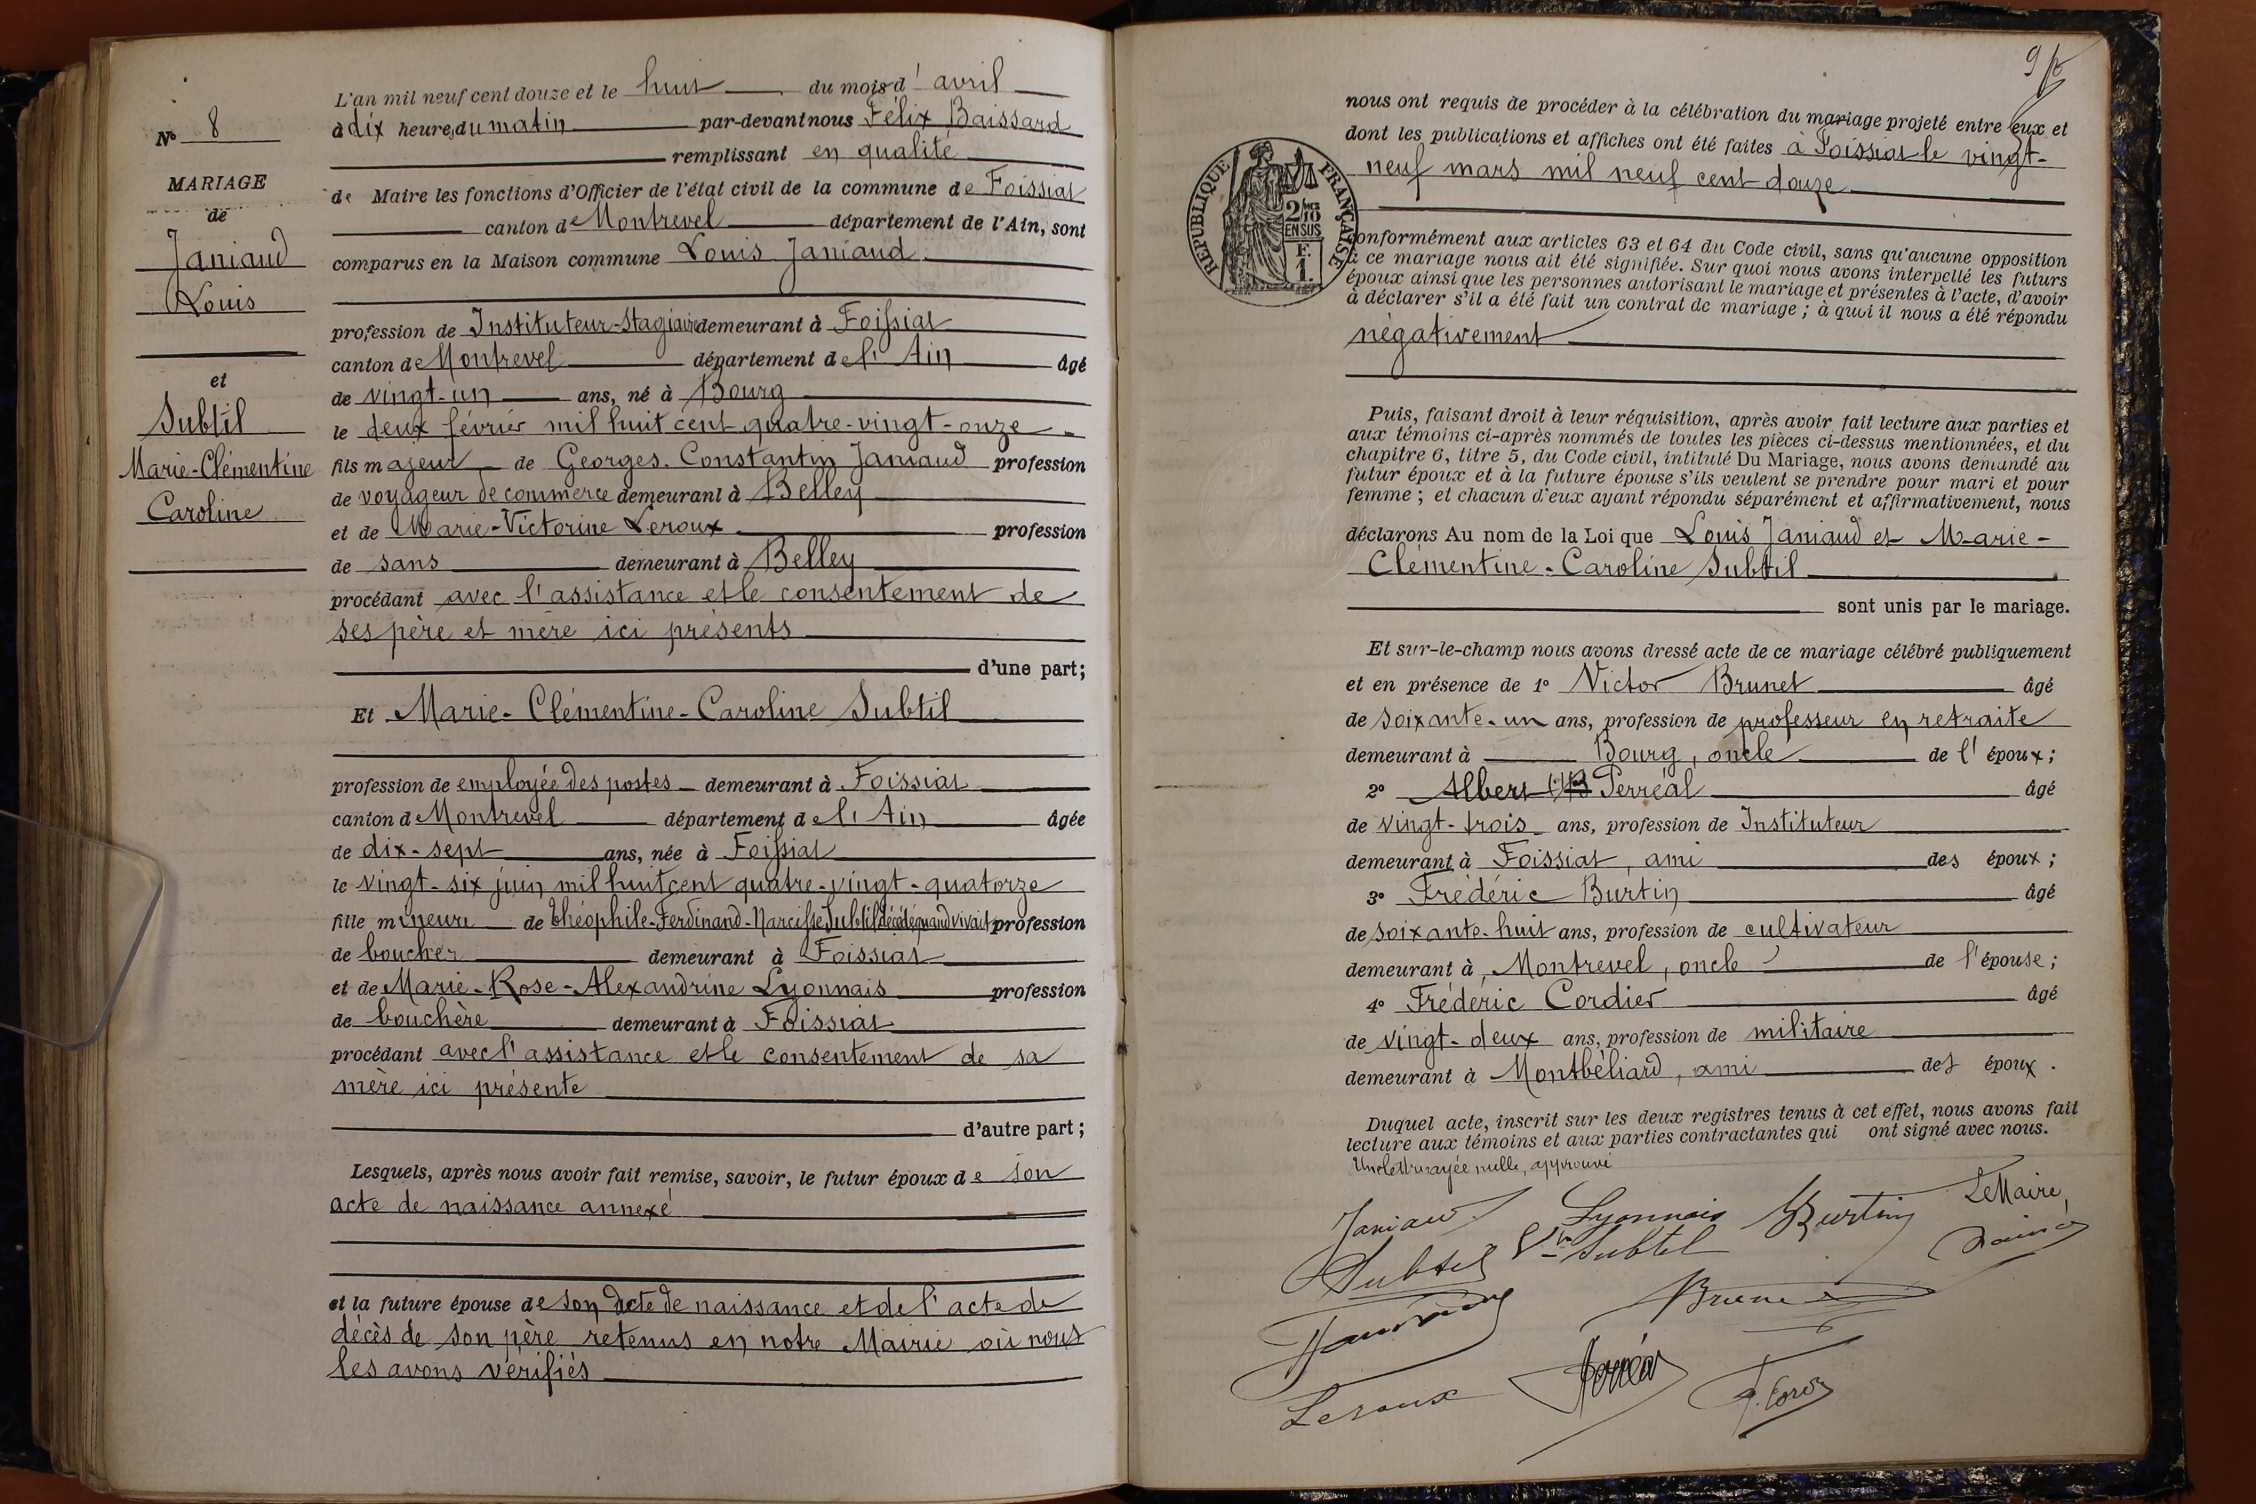 L'an mil neuf cent douze et le huit du mois d'avril
à dix heures du matin par-devant nous Félix Baissard
remplissant en qualité
de Maire les fonctions d'Officier de l'état civil de la commune de Foissiat
canton de Montrevel département de l'Ain, sont
comparus en la Maison commune Louis Janiaud
profession de Instituteur-Stagiaire demeurant à Foissiat
canton de Montrevel département de l'Ain âgé
de vingt-un ans, né à Bourg
le deux février mil huit cent quatre-vingt-onze
fils majeur de Georges-Constantin Janiaud profession
de voyageur de commerce demeurant à Belley
et de Marie-Victorine Leroux profession
de sans demeurant à Belley
procédant avec l'assistance et le consentement de
ses père et mère ici présents
d'une part;
Et Marie-Clémentine-Caroline Subtil
profession de employée des postes demeurant à Foissiat
canton de Montrevel département de l'Ain âgée
de dix-sept ans, née à Foissiat
le vingt-six juin mil huit cent quatre-vingt-quatorze
fille mineure de Théophile-Ferdinand-Narcisse Subtil décédé quand vivait profession
de boucher demeurant à Foissiat
et de Marie-Rose-Alexandrine Lyonnais profession
de bouchère demeurant à Foissiat
procédant avec l'assistance et le consentement de sa
mère ici présente
d'autre part;
Lesquels, après nous avoir fait remise, savoir, le futur époux de son
acte de naissance annexé
et la future épouse de son acte de naissance et de l'acte de
décès de son père retenus en notre Mairie où nous
les avons vérifiés
No 8
MARIAGE
de
Janiaud
Louis
et
Subtil
Marie-Clémentine
Caroline
9
nous ont requis de procéder à la célébration du mariage projeté entre eux et
dont les publications et affiches ont été faites à Foissiat le vingt-
neuf mars mil neuf cent douze
conformément aux articles 63 et 64 du Code civil, sans qu'aucune opposition
à ce mariage nous ait été signifiée. Sur quoi nous avons interpellé les futurs
époux ainsi que les personnes autorisant le mariage et présentes à l'acte, d'avoir
à déclarer s'il a été fait un contrat de mariage; à quoi il nous a été répondu
négativement
Puis, faisant droit à leur réquisition, après avoir fait lecture aux parties et
aux témoins ci-après nommés de toutes les pièces ci-dessus mentionnées, et du
chapitre 6, titre 5, du Code civil, intitulé Du Mariage, nous avons demandé au
futur époux et à la future épouse s'ils veulent se prendre pour mari et pour
femme; et chacun d'eux ayant répondu séparément et affirmativement, nous
déclarons Au nom de la Loi que Louis Janiaud et Marie-
Clémentine-Caroline Subtil
sont unis par le mariage.
Et sur-le-champ nous avons dressé acte de ce mariage célébré publiquement
et en présence de 1o Victor Brunet âgé
de soixante-un ans, profession de professeur en retraite
demeurant à Bourg, oncle de l'époux;
2o Albert Perréal âgé
de vingt-trois ans, profession de Instituteur
demeurant à Foissiat, ami des époux;
3o Frédéric Burtin âgé
de soixante-huit ans, profession de cultivateur
demeurant à Montrevel, oncle de l'épouse;
4o Frédéric Cordier âgé
de vingt-deux ans, profession de militaire
demeurant à Montbéliard, ami des époux.
Duquel acte, inscrit sur les deux registres tenus à cet effet, nous avons fait
lecture aux témoins et aux parties contractantes qui ont signé avec nous.
Une lettre rayée nulle, approuvé
Janiaud Lyonnais Burtin Le Maire,
Subtil Vve Subtil
Brunet
Leroux Perréal F. Cord
REPUBLIQUE FRANÇAISE
2/10
EN SUS
F.
1.